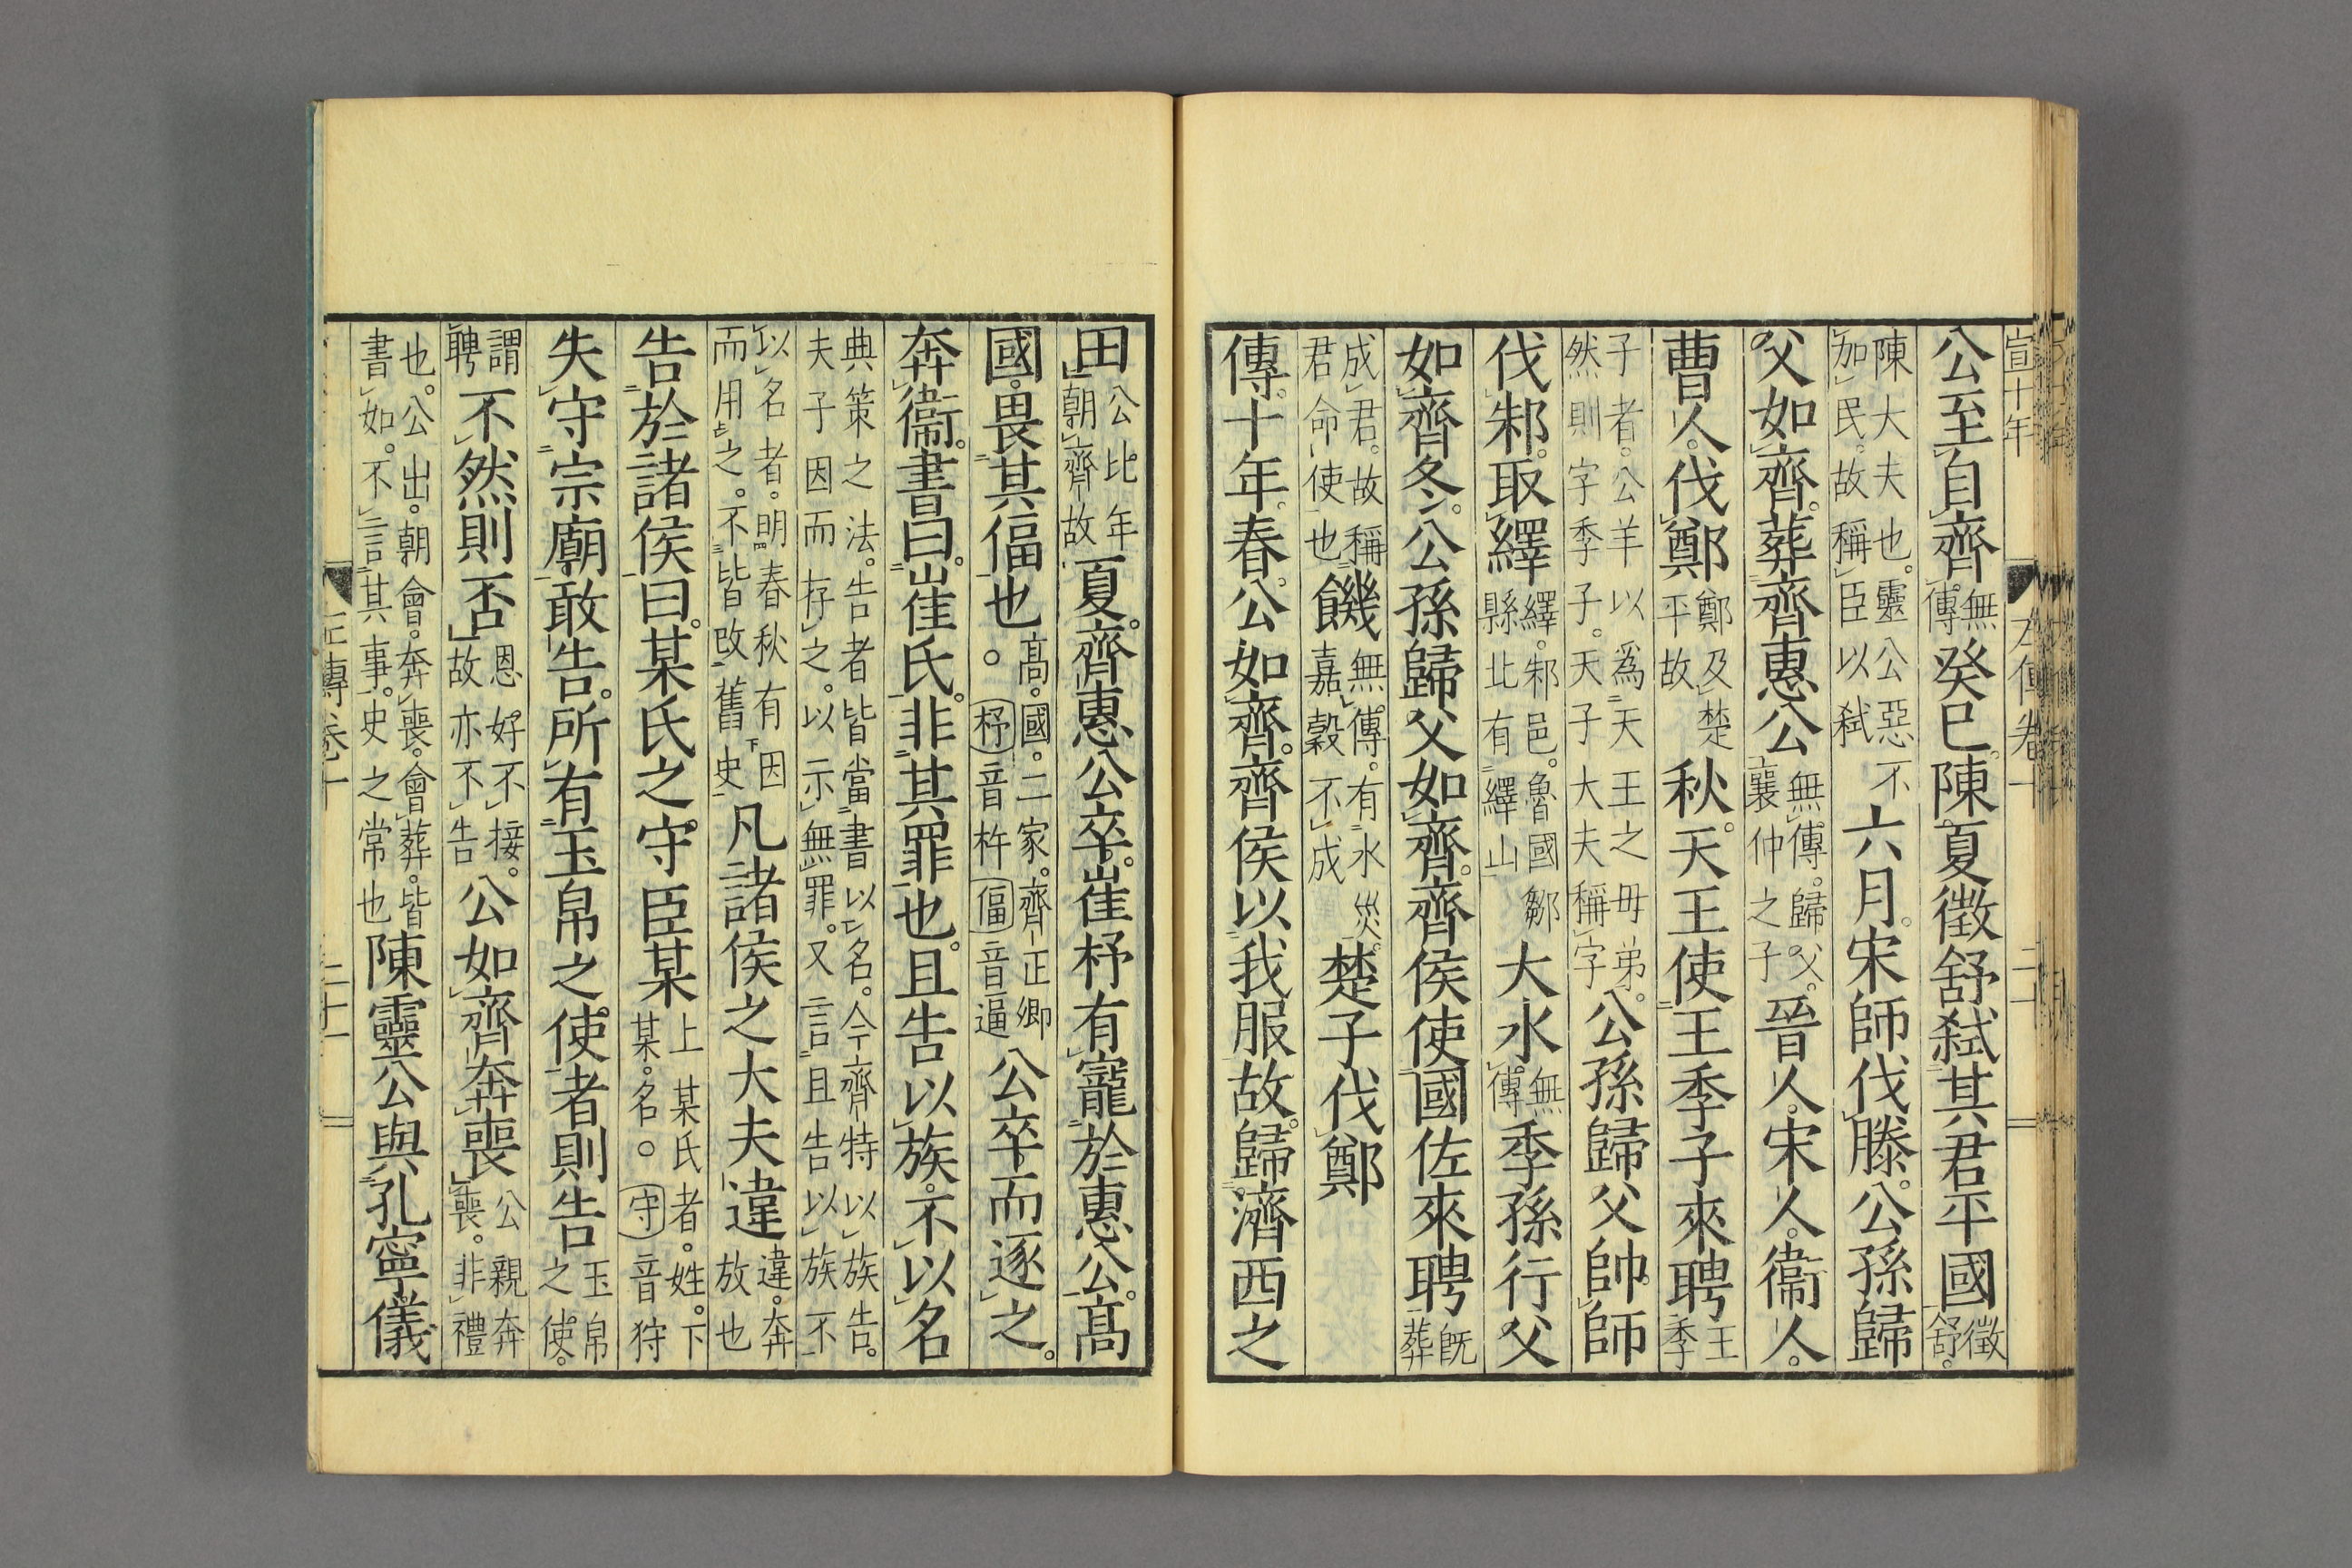 宣十年
公至自齊無傳癸巳陳夏徵舒弑其君平國徵舒
陳大夫也靈公惡不加民故稱臣以弑六月宋師伐滕公孫歸
父如齊葬齊惠公無傳歸父襄仲之子晉人宋人衞人
曹人伐鄭鄭及楚平故秋天王使王季子來聘王季
子者公羊以爲天王之母弟然則字季子天子大夫稱字公孫歸父帥師
伐邾取繹繹邾邑魯國鄒縣北有繹山大水無傳季孫行父
如齊冬公孫歸父如齊齊侯使國佐來聘既葬
成君故稱君命使也饑無傳有水災嘉穀不成楚子伐鄭
傳十年春公如齊齊侯以我服故歸濟西之
田公比年朝齊故夏齊惠公卒崔杼有寵於惠公高
國畏其偪也高國二家齊正卿○杼音杵偪音逼公卒而逐之
奔衞書曰崔氏非其罪也且告以族不以名
典策之法告者皆當書以名今齊特以族告夫子因而存之以示無罪又言且告以族不
以名者明春秋有因而用之不皆改舊史凡諸侯之大夫違違奔放也
告於諸侯曰某氏之守臣某上某氏者姓下某名○守音狩
失守宗廟敢告所有玉帛之使者則告玉帛之使
謂聘不然則否恩好不接故亦不告公如齊奔喪公親奔喪非禮
也公出朝會奔喪會葬皆書如不言其事史之常也陳靈公與孔寧儀
左傳卷十
二十一